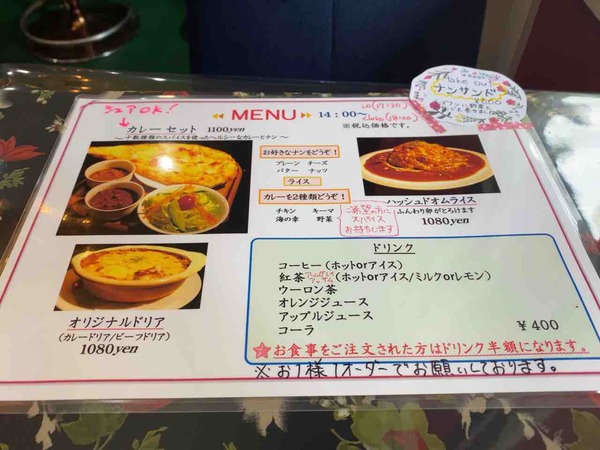 シェアOK!
MENU 14:00〜
LO(17:30)
Close(18:00)
※税込価格です。
Take Out
ナンサンド
カレーセット 1100yen
〜十数種類のスパイスを使ったヘルシーなカレーとナン〜
お好きなナンをどうぞ!
プレーン チーズ
バター ナッツ
ライス
カレーを2種類どうぞ!
チキン キーマ
海の幸 野菜
ご希望の方に
スパイス
お持ちします
ハッシュドオムライス
ふんわり卵がとろけます
1080yen
オリジナルドリア
(カレードリア/ビーフドリア)
1080yen
ドリンク
コーヒー(ホットorアイス)
紅茶 アールグレイ アッサム (ホットorアイス/ミルクorレモン)
ウーロン茶
オレンジジュース
アップルジュース
コーラ
¥400
★お食事をご注文された方はドリンク半額になります。
※お1様1オーダーでお願いしております。